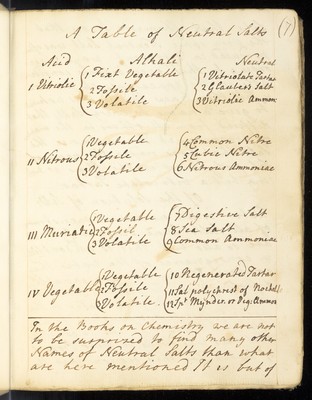 A Table of Neutral Salts (7)
Acid Alkali Neutral
I Vitriolic { 1 Fixt Vegetable { 1 Vitriolate Tartar
2 Fossile 2 Glaubers Salt
3 Volatile 3 Vitriolic Ammon:
II Nitrous { 1 Vegetable { 4 Common Nitre
2 Fossile 5 Cubic Nitre
3 Volatile 6 Nitrous Ammoniac
III Muriatic { 1 Vegetable { 7 Digestive Salt
2 Fossil 8 Sea Salt
3 Volatile 9 Common Ammoniac
IV Vegetable { 1 Vegetable { 10 Regenerated Tartar
2 Fossile 11 Sal polychrest of Rochell
3 Volatile 12 Spt Mynder. or Veg: Ammon
In the Books on Chemistry we are not
to be surprized to find many other
Names of Neutral Salts than what
are here mentioned It is but of